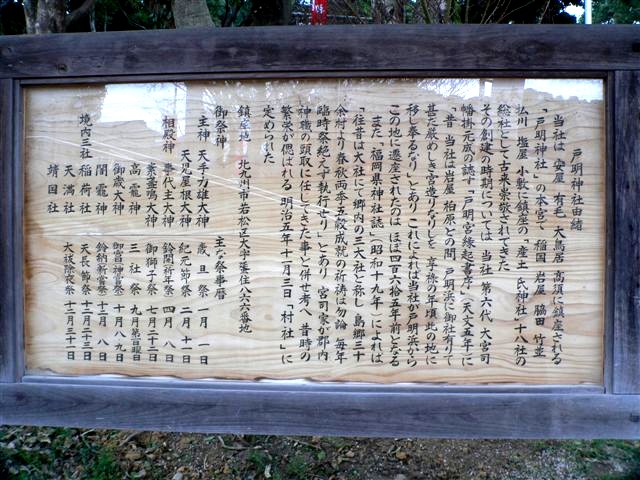 戸明神社由緒
当社は 安屋 有毛 大鳥居 高須に鎮座される
「戸明神社」の本宮で 稲国 岩屋 脇田 竹並
払川 塩屋 小敷に鎮座の「産土 氏神社」十八社の
総社として古来崇敬されてきた
その創建の時期については 当社 第六代 大宮司
幡掛元成の誌す「戸明宮縁起書序」(天文五年)に
「昔 当社は岩屋 柏原との間 戸明浜に御社有りて
甚だ厳めしき宮造りなりしを 享禄の年頃此の地に
移し奉るなり」とあり これによれば当社が戸明浜から
この地に遷座されたのは ほぼ四百六拾五年前となる
また「福岡県神社誌」(昭和十九年)によれば
「往昔は大社にて郷内の三大社と称し 島郷三十
余村より春秋両季五穀成就の祈祷は勿論 毎年
臨時祭絶えず執行せり」とあり 宮司家が郡内
神職の頭取に任じてきた事と併せ考へ 昔時の
繁栄が偲ばれる 明治五年十月三日「村社」に
定められた
鎮座地 北九州市若松区大字蜑住八六六番地
御祭神
主神 天手力雄大神
天児屋根大神
相殿神 事代主大神
素盞嗚大神
高龗神
御歳大神
闇龗神
境内三社 稲荷社
天満社
靖国社
主な祭事暦
歳旦祭 一月一日
紀元節祭 二月十一日
鈴開祈年祭 四月八日
御獅子祭 七月二十二日
三社祭 九月第四日曜日
御宮神幸祭 十月八、九日
鈴納新嘗祭 十二月八日
天長節祭 十二月二十三日
大祓除夜祭 十二月三十一日